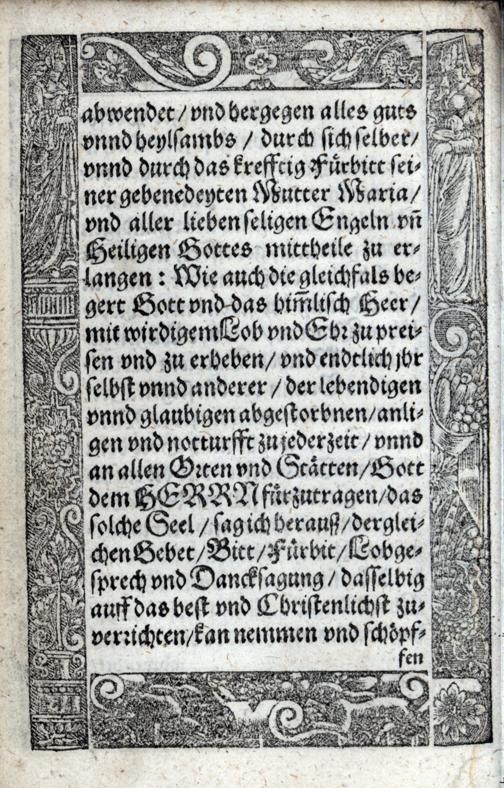 abwendet / vnd hergegen alles guts
vnnd heylsambs / durch sich selber /
vnnd durch das krefftig Fürbitt sei-
ner gebenedeyten Mutter Maria /
vnd aller lieben seligen Engeln vn̄
Heiligen Gottes mittheile zu er-
langen : Wie auch die gleichfals be-
gert Gott vnd das him̄lisch Heer /
mit wirdigem Lob vnd Ehr zu prei-
sen vnd zu erheben / vnd endtlich jhr
selbst vnnd anderer / der lebendigen
vnnd glaubigen abgestorbnen / anli-
gen vnd notturfft zu jederzeit / vnnd
an allen Orten vnd Stätten / Gott
dem HERRN fürzutragen / das
solche Seel / sag ich herauß / derglei-
chen Gebet / Bitt / Fürbit / Lobge-
sprech vnd Dancksagung / dasselbig
auff das best vnd Christenlichst zu-
verrichten / kan nemmen vnd schöpf-
fen